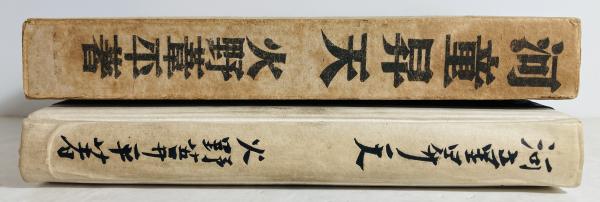 河童昇天
火野葦平著
河童昇天
火野葦平著